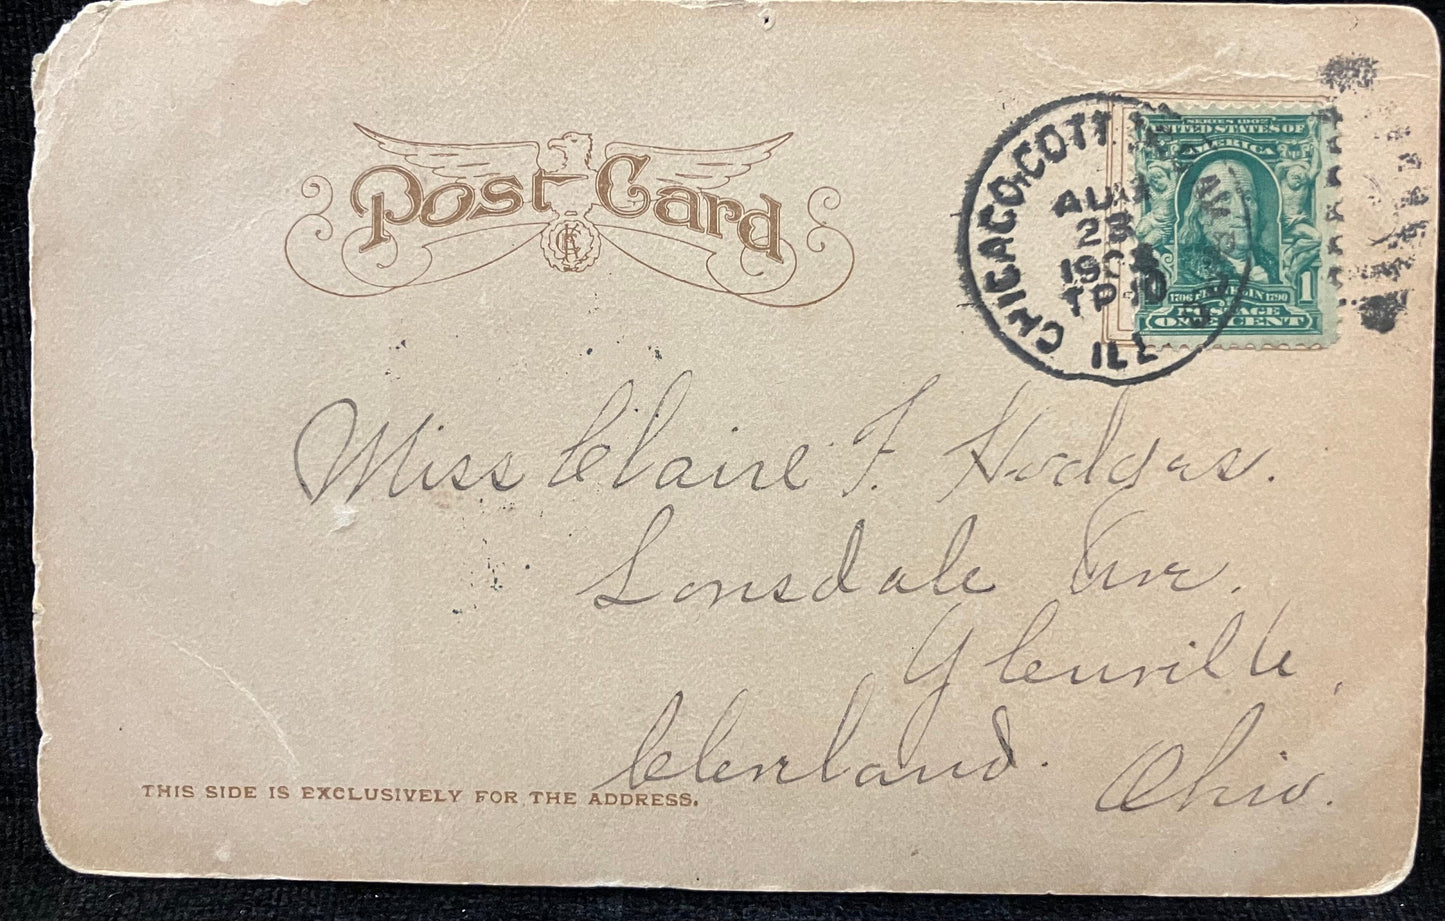 Post Card
CHICAGO, COTT
AUG
23
190
TP-10
ILL
SERIES 1902
UNITED STATES OF
AMERICA
1706 FRANKLIN 1790
1
POSTAGE
ONE CENT
Miss Claire F. Hodges.
Lonsdale Ave.
Glenville,
Cleveland. Ohio.
THIS SIDE IS EXCLUSIVELY FOR THE ADDRESS.